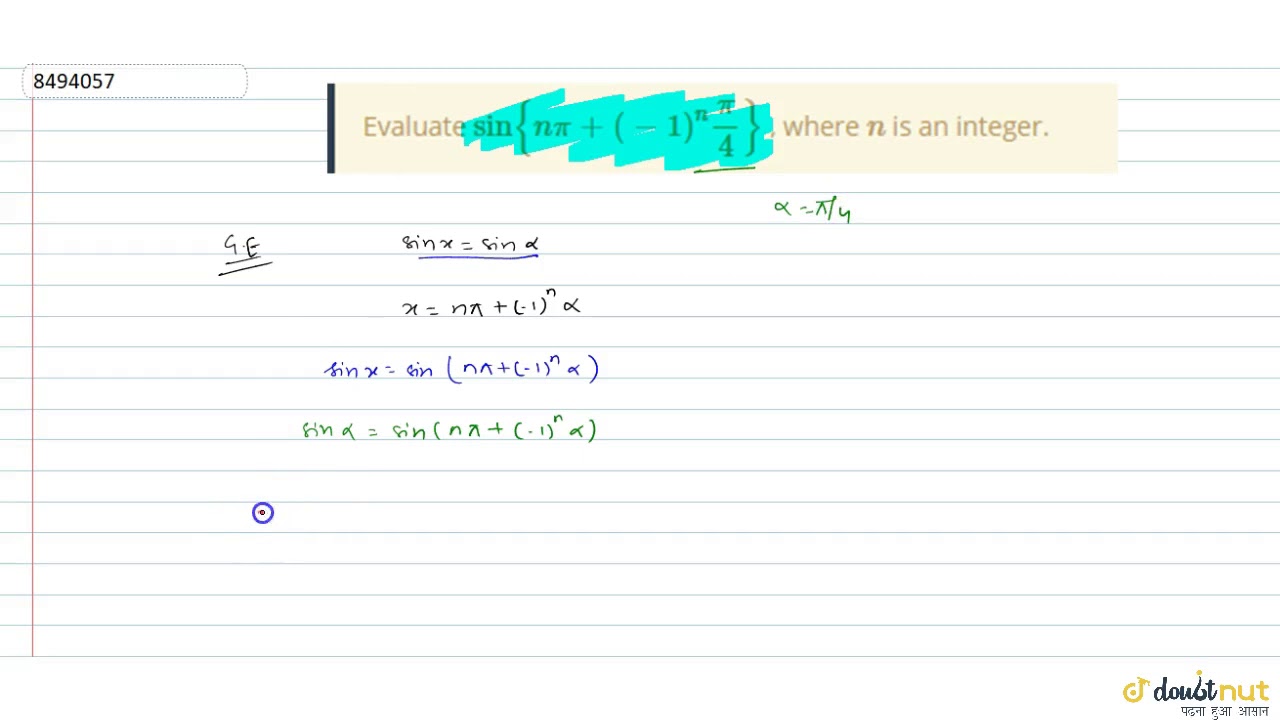 8494057
Evaluate sin{nπ + (−1)^n π/4}, where n is an integer.
α = π/4
G.E
sin x = sin α
x = nπ + (-1)^n α
sin x = sin (nπ + (-1)^n α)
sin α = sin (nπ + (-1)^n α)
doubtnut
पढ़ना हुआ आसान